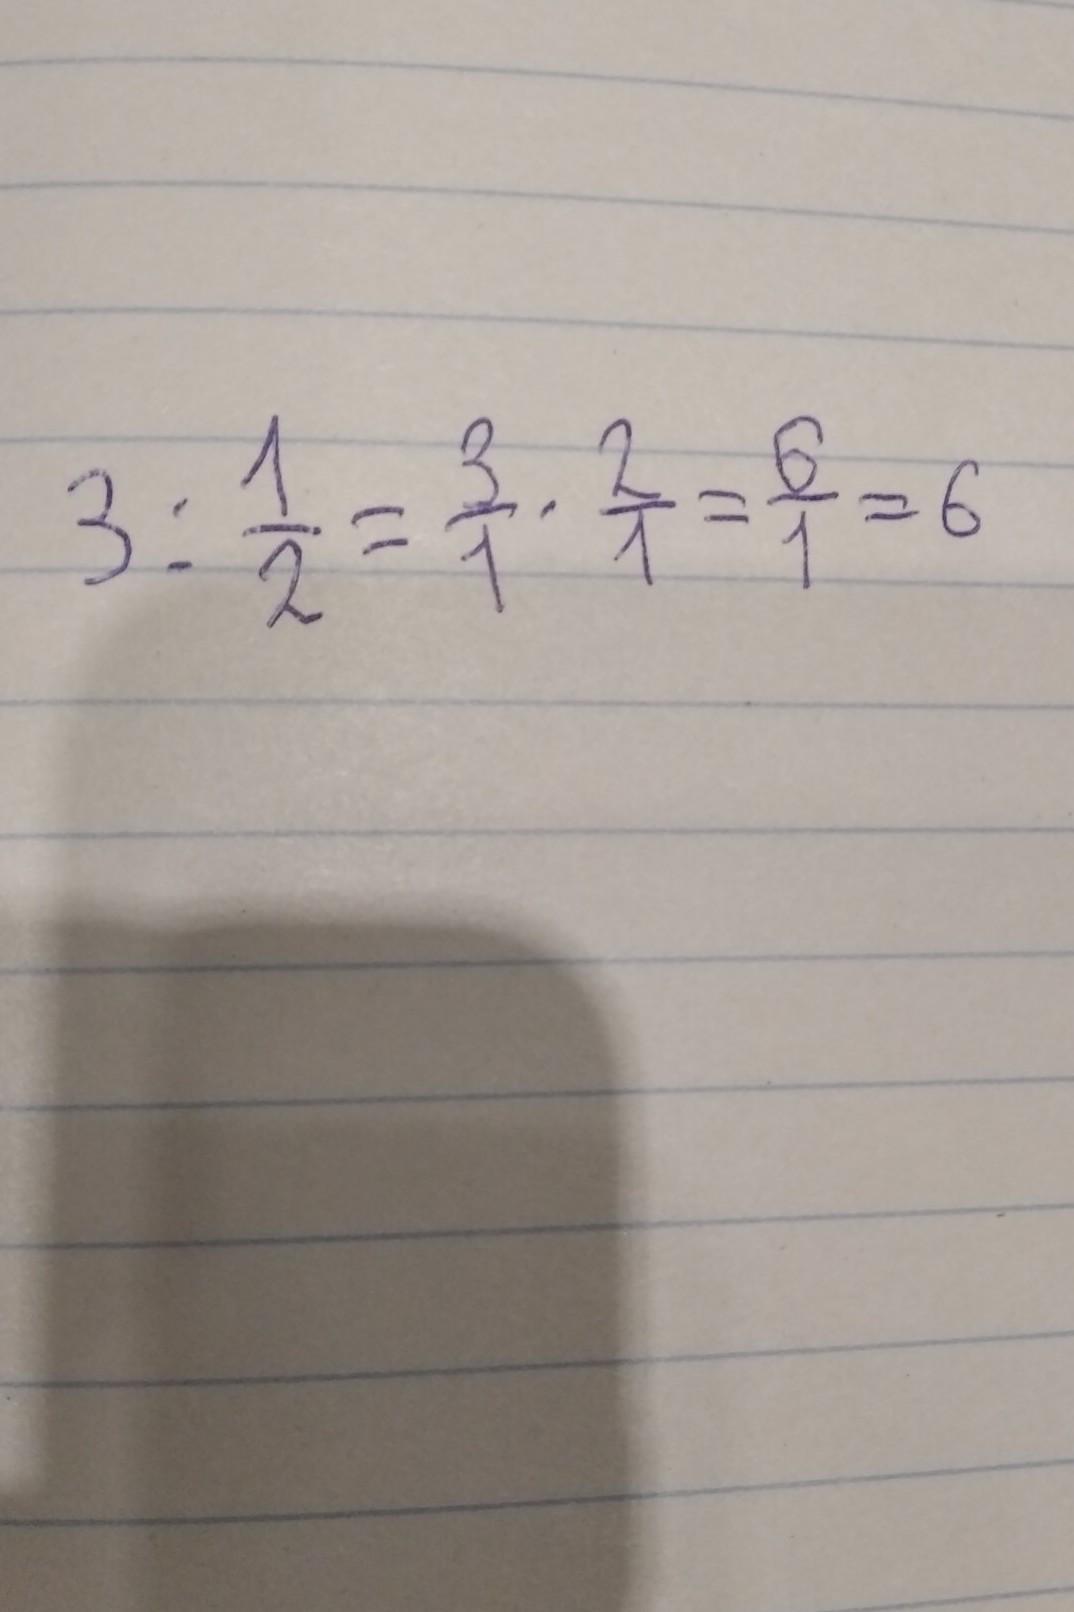 3 : 1/2 = 3/1 · 2/1 = 6/1 = 6